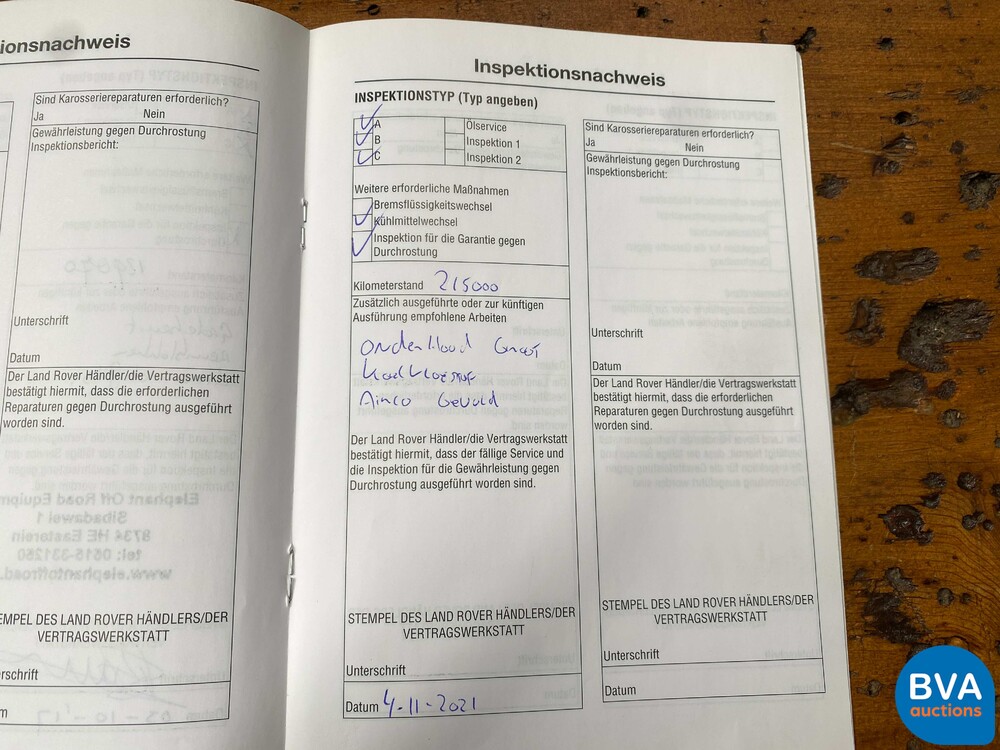 ionsnachweis
Sind Karosseriereparaturen erforderlich?
Ja Nein
Gewährleistung gegen Durchrostung
Inspektionsbericht:
Unterschrift
Datum
Der Land Rover Händler/die Vertragswerkstatt
bestätigt hiermit, dass die erforderlichen
Reparaturen gegen Durchrostung ausgeführt
worden sind.
EMPEL DES LAND ROVER HÄNDLERS/DER
VERTRAGSWERKSTATT
rschrift
m
Inspektionsnachweis
INSPEKTIONSTYP (Typ angeben)
A Ölservice
B Inspektion 1
C Inspektion 2
Weitere erforderliche Maßnahmen
Bremsflüssigkeitswechsel
Kühlmittelwechsel
Inspektion für die Garantie gegen
Durchrostung
Kilometerstand 215000
Zusätzlich ausgeführte oder zur künftigen
Ausführung empfohlene Arbeiten
Onderhoud Groot
Airco Gevuld
Der Land Rover Händler/die Vertragswerkstatt
bestätigt hiermit, dass der fällige Service und
die Inspektion für die Gewährleistung gegen
Durchrostung ausgeführt worden sind.
STEMPEL DES LAND ROVER HÄNDLERS/DER
VERTRAGSWERKSTATT
Unterschrift
Datum 4-11-2021
Sind Karosseriereparaturen erforderlich?
Ja Nein
Gewährleistung gegen Durchrostung
Inspektionsbericht:
Unterschrift
Datum
Der Land Rover Händler/die Vertragswerkstatt
bestätigt hiermit, dass die erforderlichen
Reparaturen gegen Durchrostung ausgeführt
worden sind.
STEMPEL DES LAND ROVER HÄNDLERS/DER
VERTRAGSWERKSTATT
Unterschrift
Datum
BVA
auctions